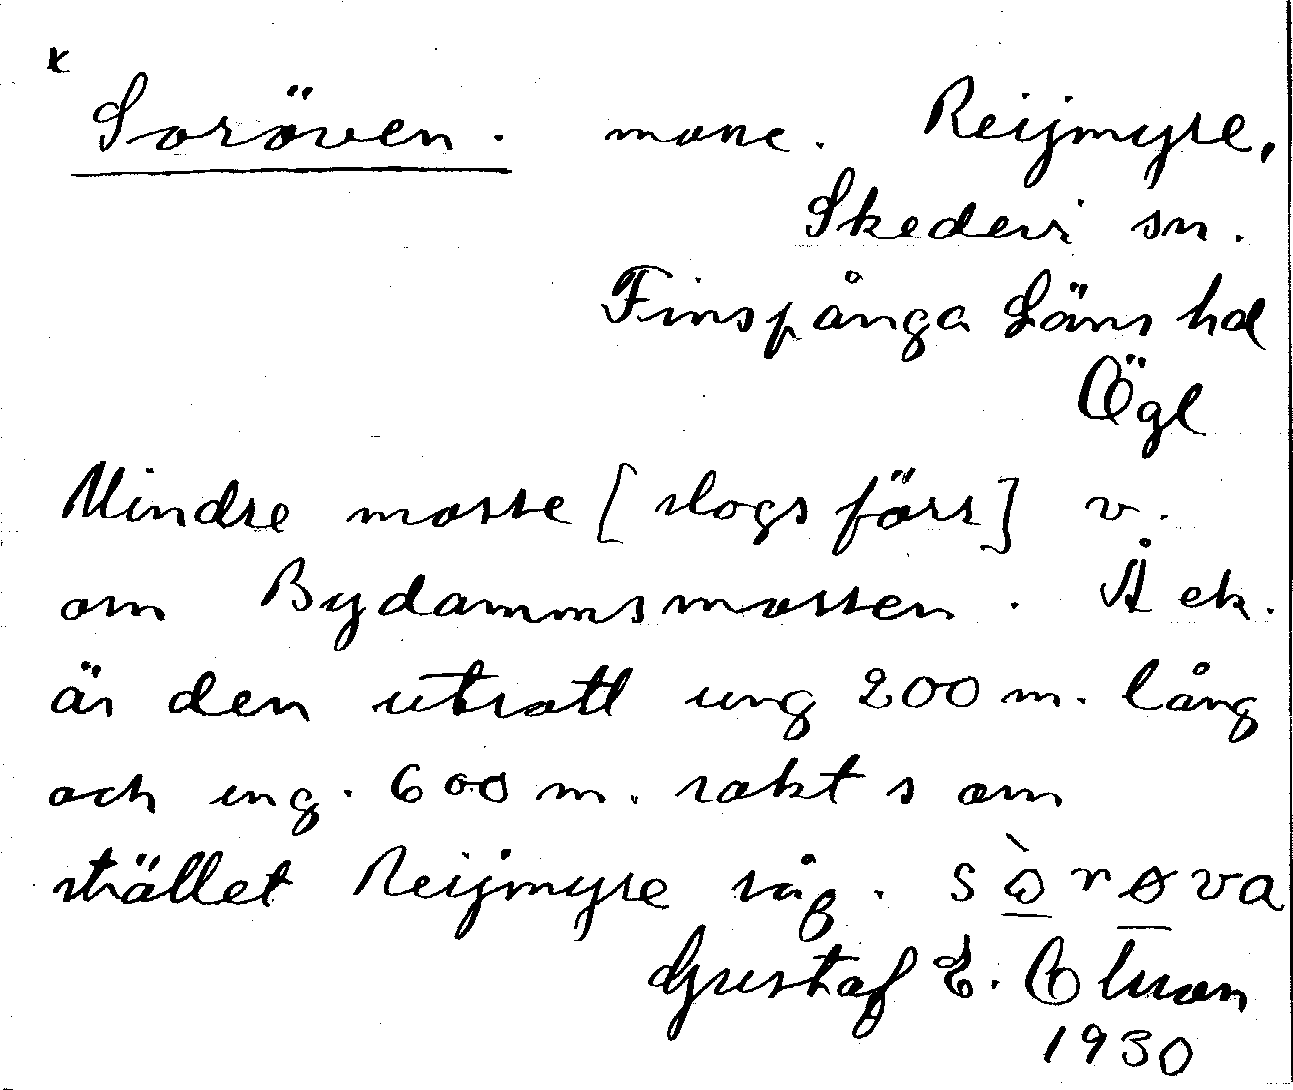 x
Soröven. mosse. Reijmyre,
Skedevi sn.
Finspånga Läns hd
Ögl
Mindre mosse [slogs förr] v.
om Bydammsmossen. Å ek.
är den utsatt ung 200 m. lång
och ung. 600 m. rakt s om
stället Reijmyre såg.
Gustaf E.
1930